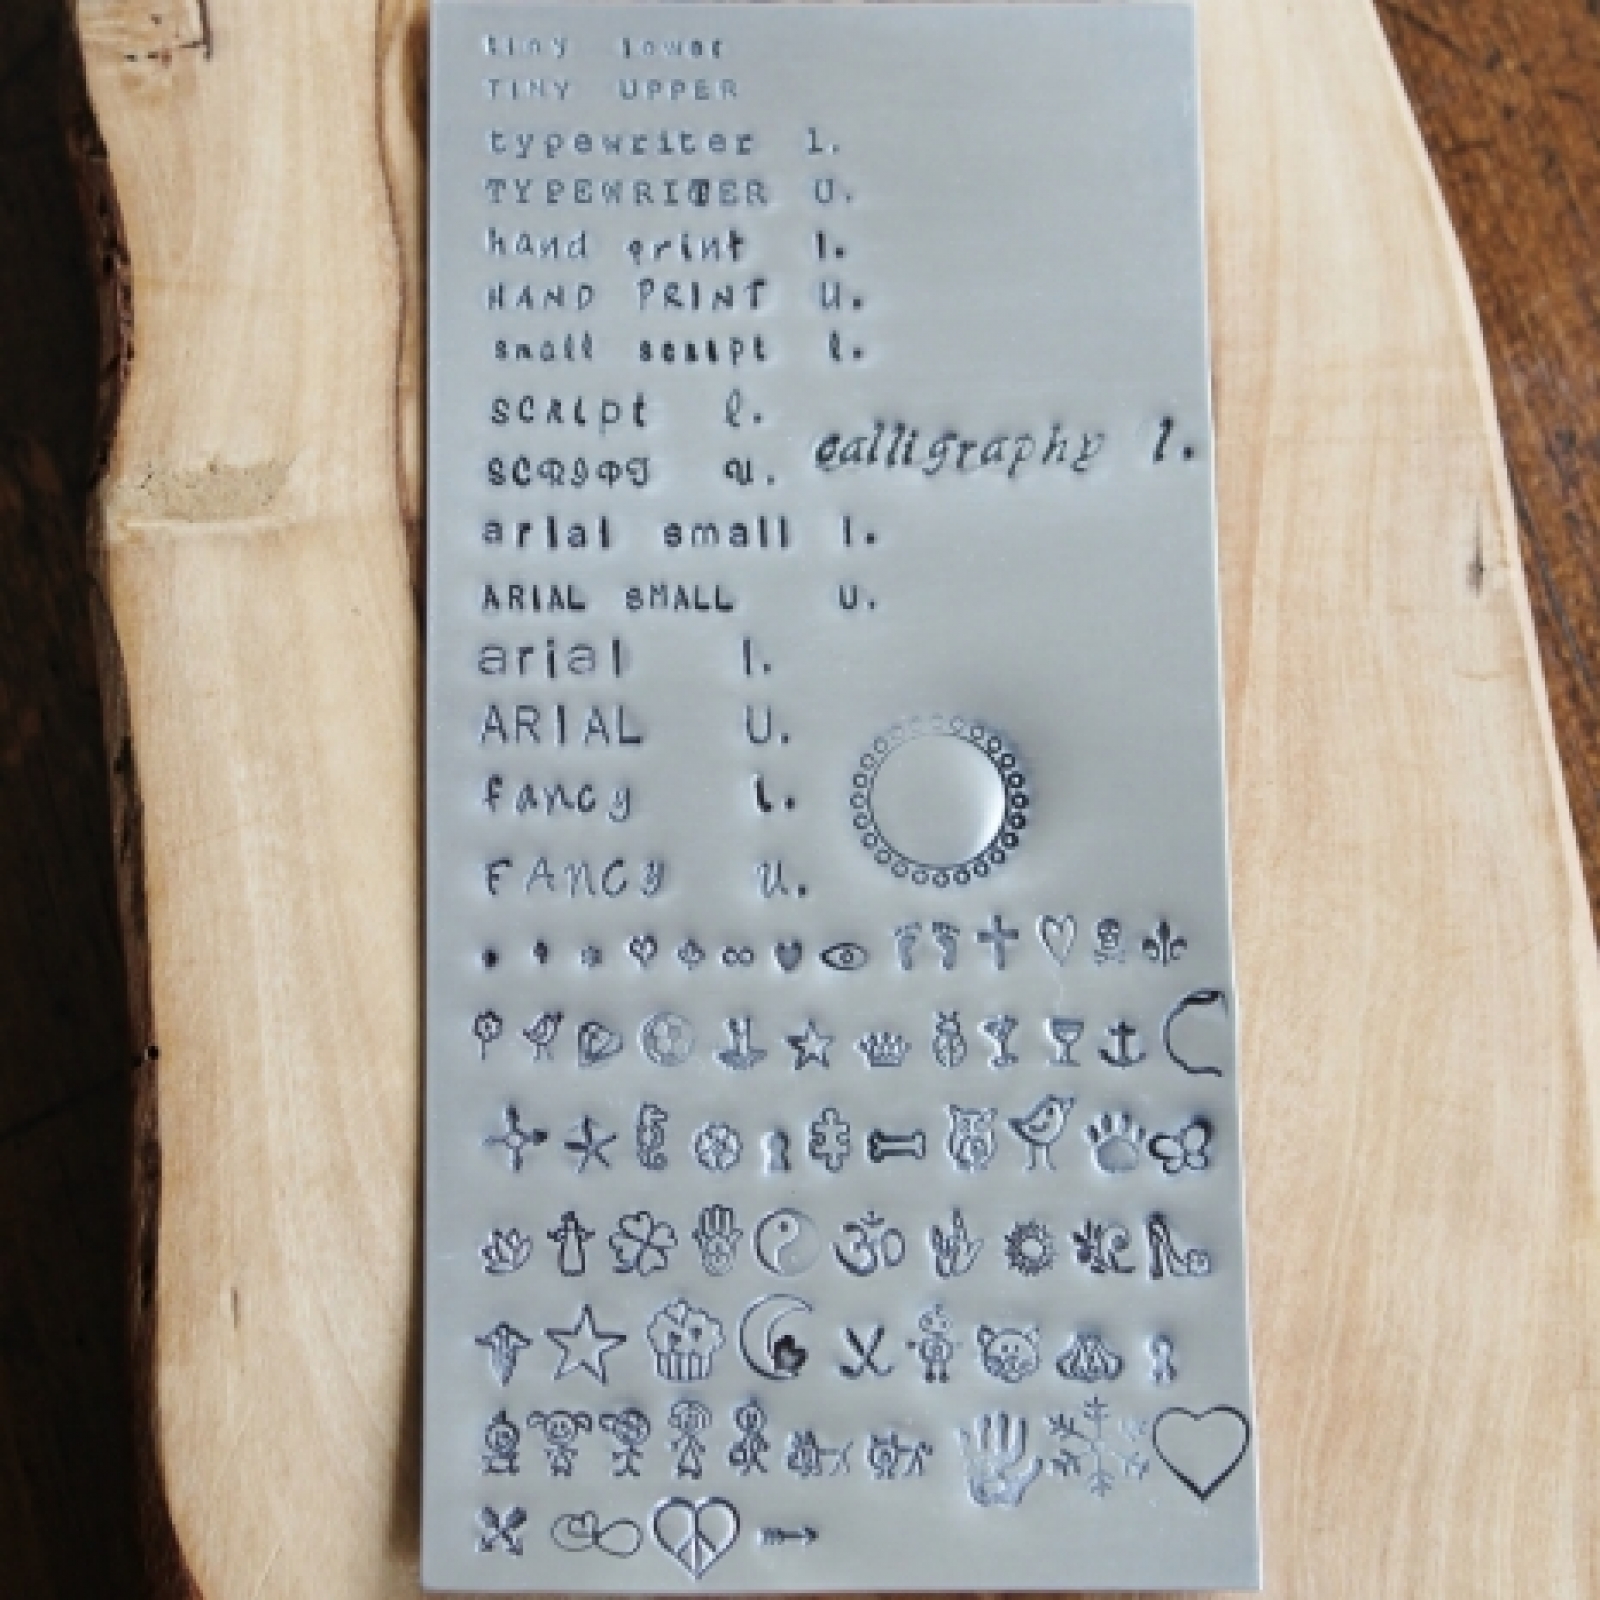 tiny lower
TINY UPPER
typewriter l.
TYPEWRITER U.
hand print l.
HAND PRINT U.
small script l.
script l.
SCRIPT U.
calligraphy l.
arial small l.
ARIAL SMALL U.
arial l.
ARIAL U.
fancy l.
FANCY U.